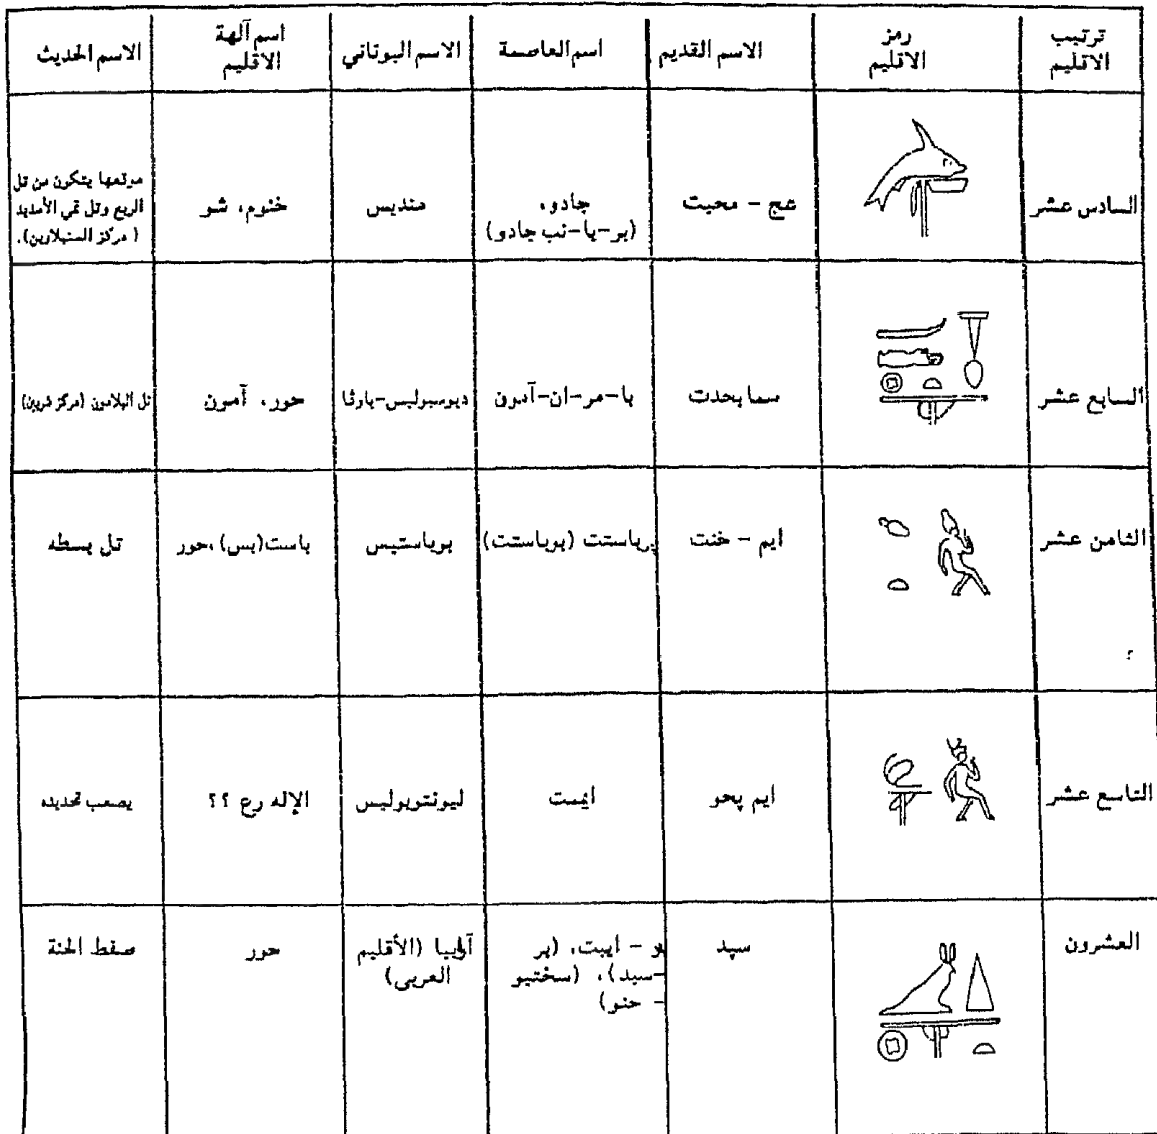 ترتيب الاقليم | رمز الاقليم | الاسم القديم | اسم العاصمة | الاسم اليوناني | اسم آلهة الاقليم | الاسم الحديث
السادس عشر | عج - محيت | جادو، (بر-با-نب جادو) | منديس | خنوم، شو | موقعها يتكون من تل الربع وتل تمي الأمديد (مركز السنبلاوين).
السابع عشر | سما بحدت | با-مر-ان-آمون | ديوسبوليس-بارثا | حور، آمون | تل البلامون (مركز شربين)
الثامن عشر | ايم - خنت | برباستت (بوباستت) | بوباستيس | باست (بس)، حور | تل بسطه
؟
التاسع عشر | ايم پحو | ايمت | ليونتوبوليس | الإله رع ؟؟ | يصعب تحديده
العشرون | سپد | - ايبت، (بر -سبد)، (سختيو - حنو) | آرابيا (الأقليم العربى) | حور | صفط الحنة